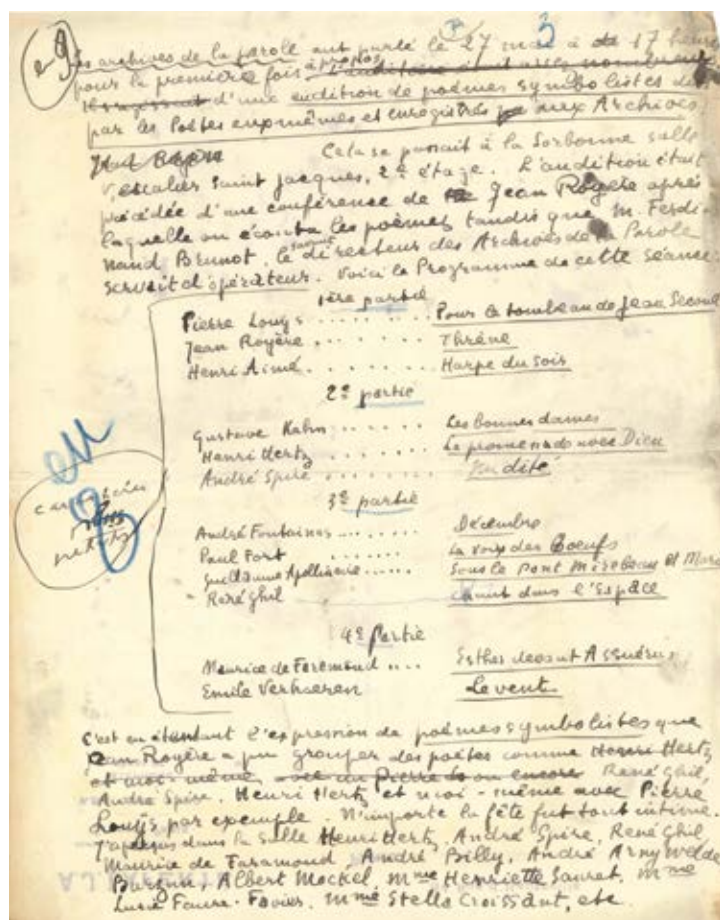 en 9
Les archives de la parole ont parlé le 27 mai à 17 heures
pour la première fois à propos L'auditoire était assez nombreux
d'une audition de poèmes symbolistes dits
par les Poètes eux mêmes et enregistrés aux Archives
Cela se passait à la Sorbonne salle
escalier Saint Jacques, 2e étage. L'audition était
précédée d'une conférence de Jean Royère après
laquelle on écouta les poèmes tandis que M. Ferdi-
nand Brunot, le savant directeur des Archives de la Parole
servait d'opérateur. Voici le Programme de cette séance.
1ère partie
Pierre Louÿs . . . . . . Pour le tombeau de Jean Second
Jean Royère . . . . . . Thrène
Henri Aimé . . . . . . Harpe du soir
2e partie
Gustave Kahn . . . . . . Les bonnes dames
Henri Hertz . . . . . . La promenade avec Dieu
André Spire . . . . . . Nudité
3e partie
André Fontainas . . . . . . Décembre
Paul Fort . . . . . . La voix des Boeufs
Guillaume Apollinaire . . . . . . Sous le Pont Mirabeau et Marie
René Ghil Chant dans l'Espace
4e Partie
Maurice de Faramond . . . . Esther devant Assuérus
Emile Verhaeren Le vent
en 8
caractères
petits
C'est en étendant l'expression de poèmes symbolistes que
Jean Royère a pu grouper des poètes comme Henri Hertz
et moi-même avec un Pierre Lo ou encore René Ghil,
André Spire, Henri Hertz et moi-même avec Pierre
Louÿs par exemple. N'importe la fête fut tout intime.
J'aperçus dans la Salle Henri Hertz, André Spire, René Ghil,
Maurice de Faramond, André Billy, André Arnyvelde
Barzun, Albert Mockel, Mme Henriette Sauret, Mme
Lucie Faure-Favier, Mme Stella Croissant, etc